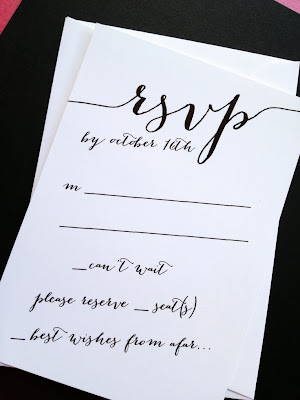 rsvp
by october 16th
m
_can't wait
please reserve _ seat(s)
_best wishes from afar...